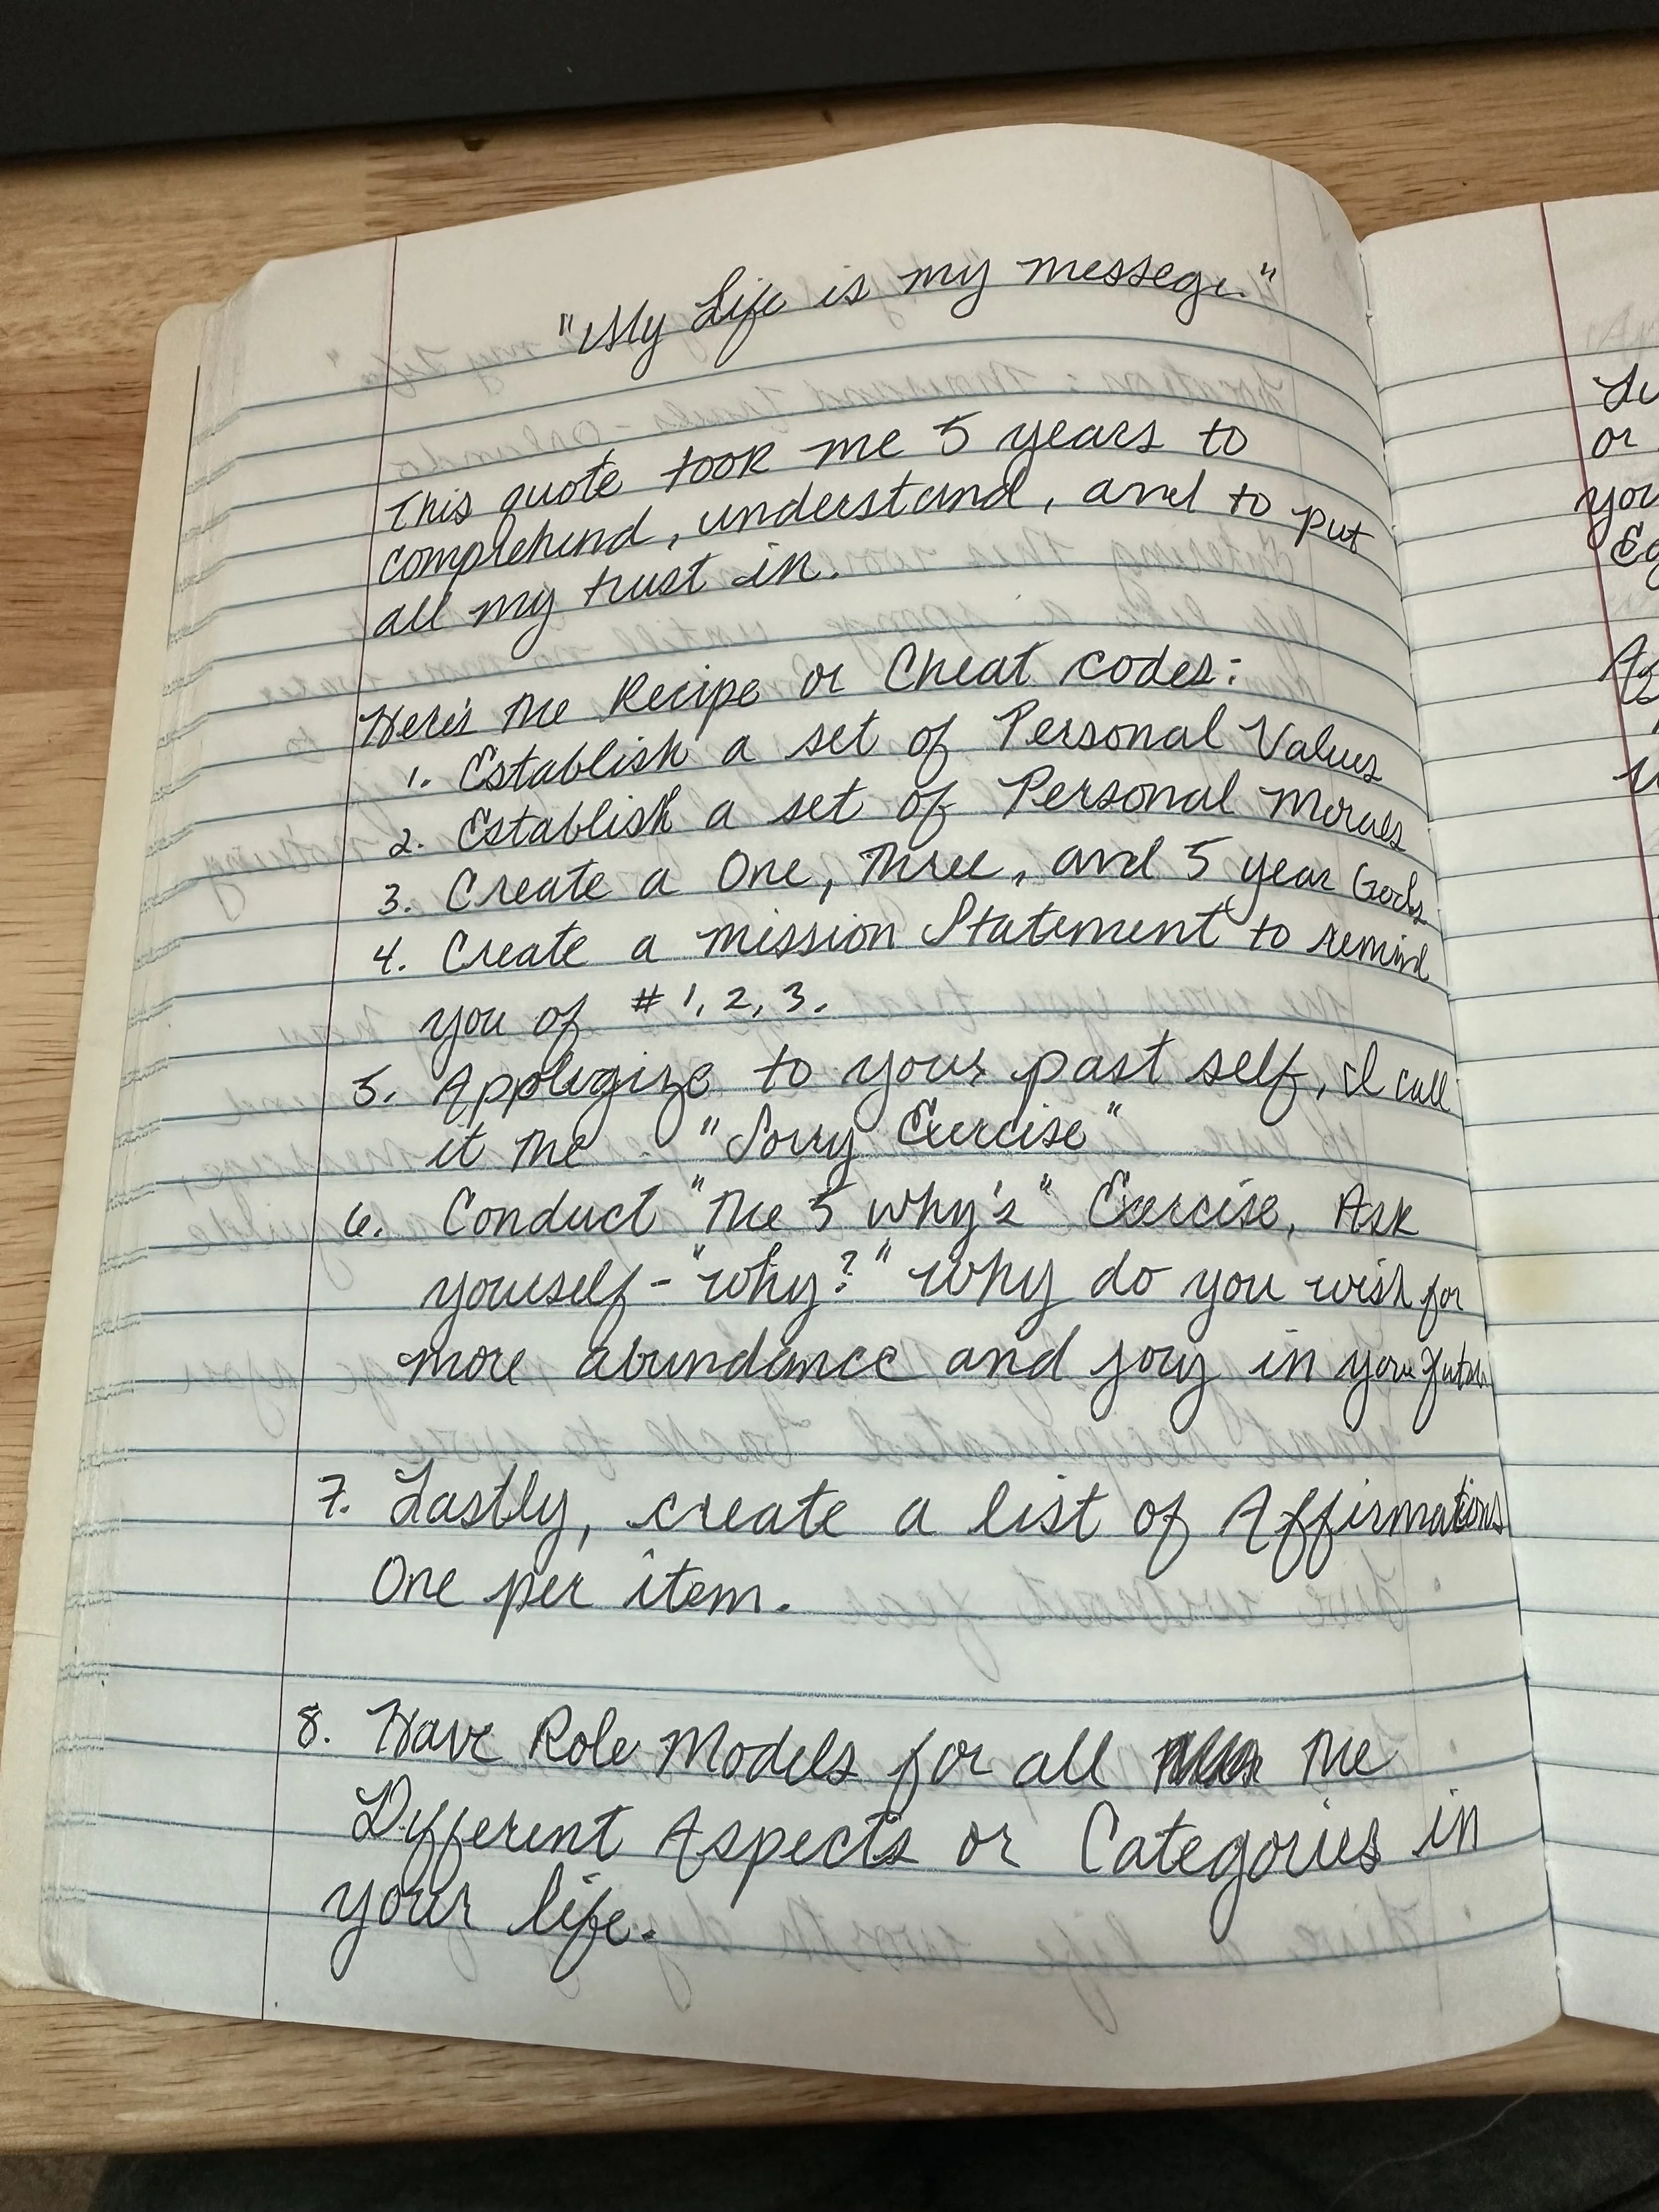 "My Life is my messege."
This quote took me 5 years to
comprehend, understand, and to put
all my trust in.
Here's the Recipe or Cheat codes:
1. Establish a set of Personal Values
2. Establish a set of Personal Morals
3. Create a One, Three, and 5 year Goals
4. Create a mission Statement to remind
you of #1, 2, 3.
5. Apologize to your past self, I call
it the "Sorry Exercise"
6. Conduct "The 5 why's" Exercise, Ask
yourself - "why?" why do you wish for
more abundance and joy in your future
7. Lastly, create a list of Affirmations
One per item.
8. Have Role Models for all the
Different Aspects or Categories in
your life.
or
you